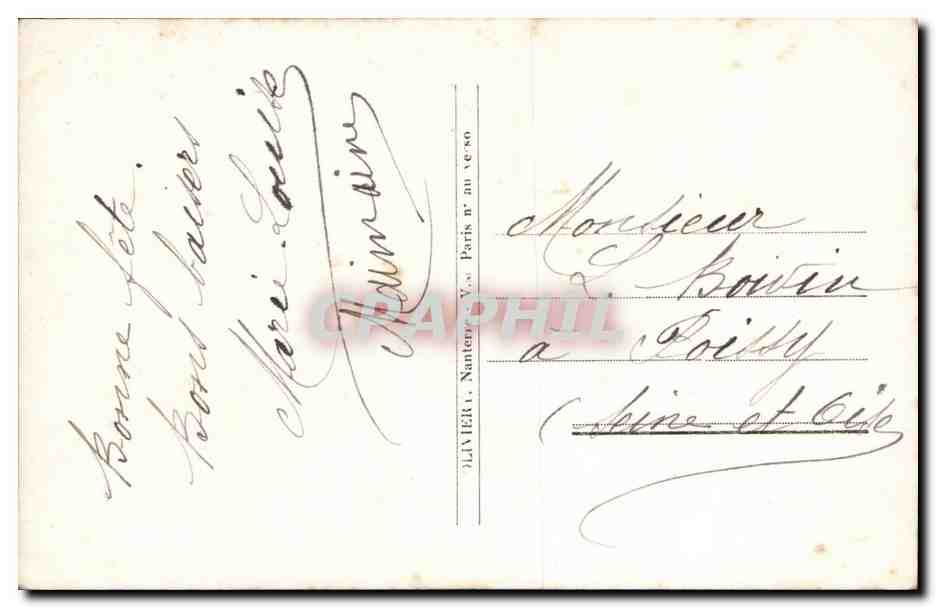 Bonne fête.
Bons baisers
Marie-Louise
OLIVIERI, Nanterre Paris n° au verso
Monsieur
L. Boivin
à Poissy
(Seine et Oise
CPARAPHIL